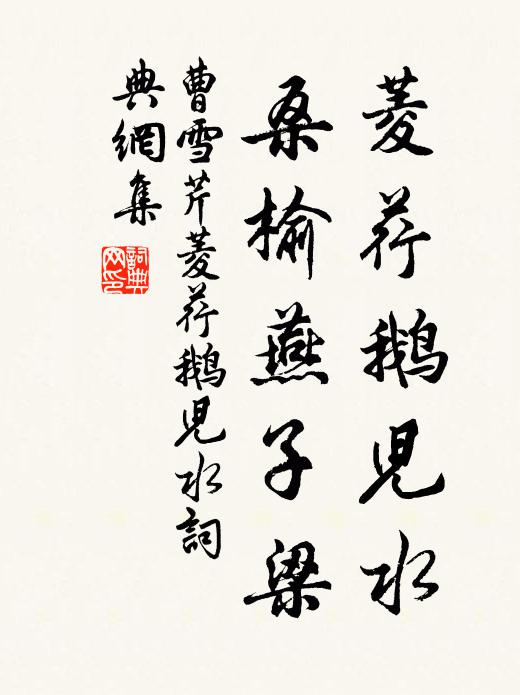 菱荇鵝兒水
桑榆燕子梁
曹雪芹菱荇鵝兒水詞
典網集
詞典
网印